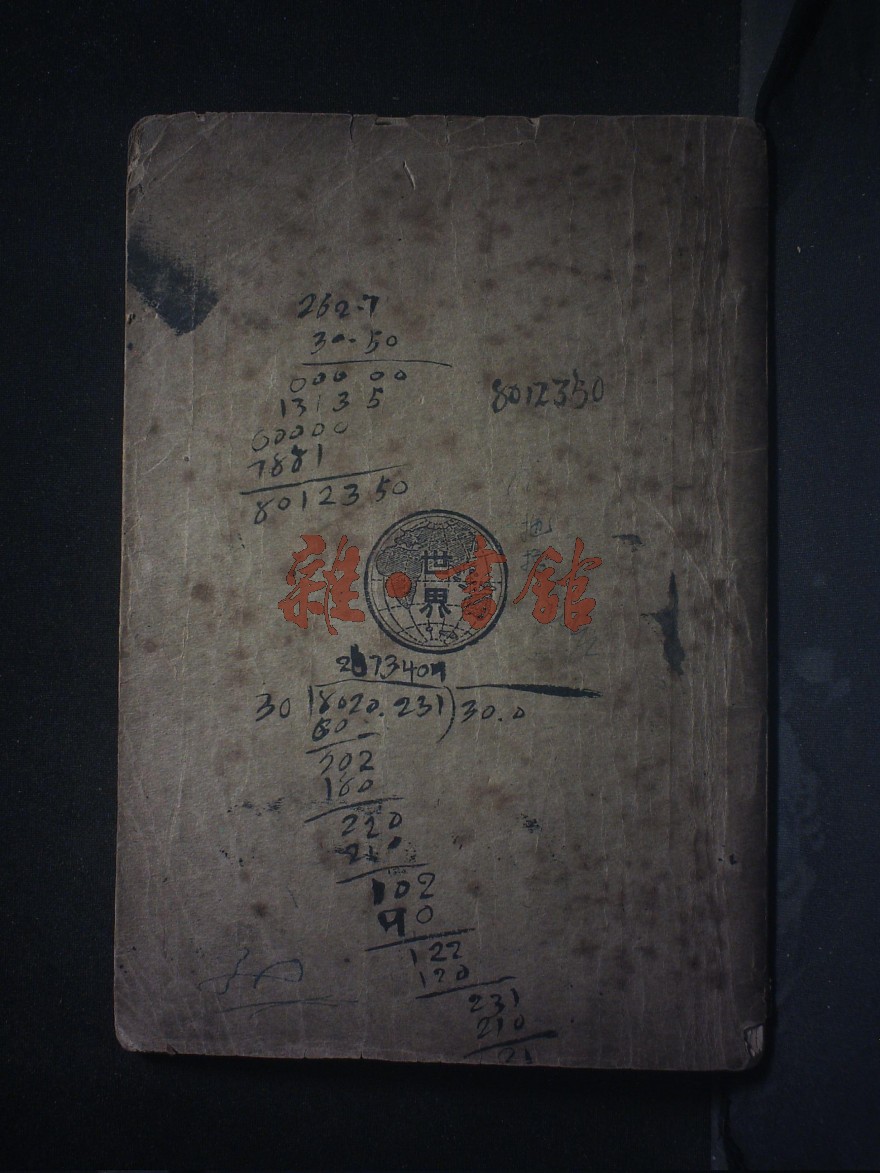 262.7
30.50
00000
13135
00000
7881
8012350
8012350
地
世界
雜·書館
2673407
30 8020.231 30.0
60
202
180
220
210
102
90
122
120
231
210
21